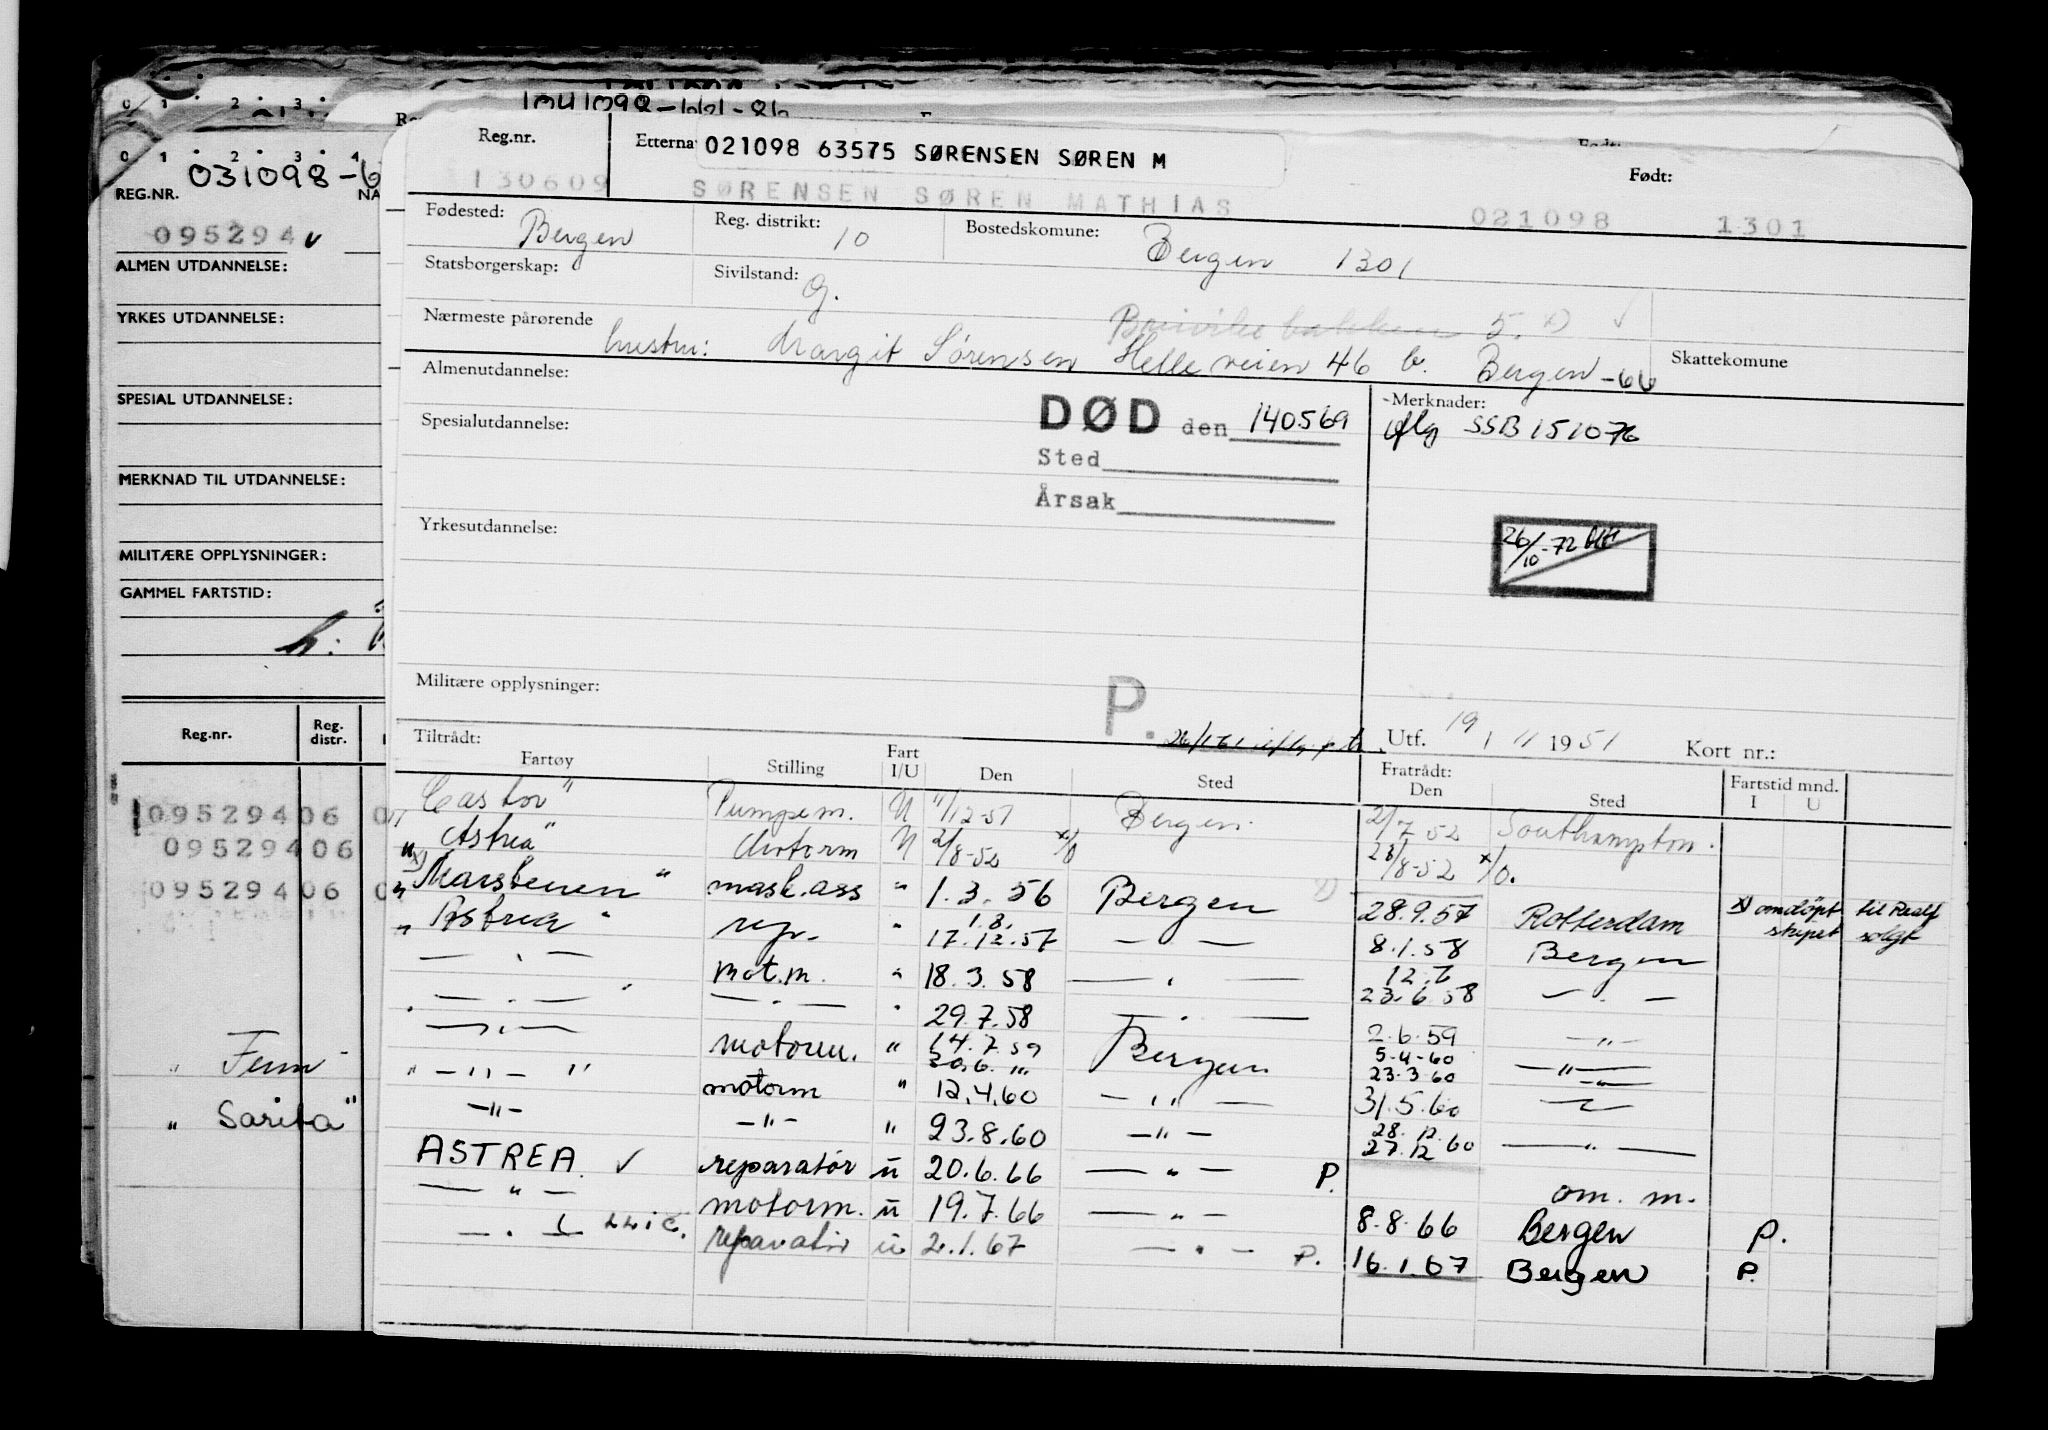 1041098-661-86
Reg.nr.
Etterna
021098 63575 SØRENSEN SØREN M
Født:
130609
SØRENSEN SØREN MATHIAS
021098 1301
Fødested: Bergen
Reg. distrikt: 10
Bostedskomune: Bergen 1301
Statsborgerskap:
Sivilstand: g.
Nærmeste pårørende
5. x)
hustru: Margit Sørensen Helleveien 46 b. Bergen -66
Skattekomune
Almenutdannelse:
DØD den 140569
-Merknader:
iflg SSB 151076
Spesialutdannelse:
Sted
Årsak
Yrkesutdannelse:
26/10-72
Militære opplysninger:
P.
Utf. 19 / 11 1951
Kort nr.:
Tiltrådt:
Fartøy Stilling Fart I/U Den Sted
Fratrådt: Den Sted Fartstid mnd. I U
Castor" Pumpem. U "/12-51 Bergen 2/7 52 Southampton.
" Astrea" Motorm U 2/8-52 x/o 28/8-52 x/o.
x) " Marsteinen " mask.ass " 1.3.56 Bergen 28.9.57 Rotterdam x) omdöpt til Realf
skipet solgt
" Astrea " rep. " 1.8. 17.12.57 — — 8.1.58 Bergen
— " — mot.m. " 18.3.58 — " — 12.6 23.6.58 — " —
— " — — " — " 29.7.58 — " — 2.6.59 — " —
— " — motorm. " 14.7.59 30.6. "" Bergen 5-4-60 23.3.60 — " —
" — " — " motorm " 12.4.60 — " — 31.5.60 — " —
— " — — " — " 23.8.60 — " — 28.12. 27.12 60 — " —
ASTREA ✓ reparatør u 20.6.66 — " — P. om. m.
— " — motorm. u 19.7.66 — " — 8.8.66 Bergen P.
— " — LLIC. reparatør u 2.1.67 — " — P. 16.1.67 Bergen P.
0 1 2 3
0 1 2 3 4
031098-6
REG.NR.
NA
095294 ✓
ALMEN UTDANNELSE:
YRKES UTDANNELSE:
SPESIAL UTDANNELSE:
MERKNAD TIL UTDANNELSE:
MILITÆRE OPPLYSNINGER:
GAMMEL FARTSTID:
h:
Reg.nr.
Reg. distr.
09529406 0
09529406
09529406 0
" Fern
" Sarita"